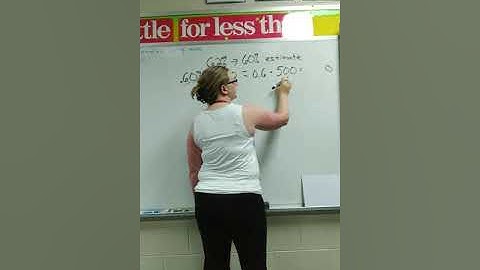 ttle for less tha
62% → 60% estimate
60% = 0.6 · 500 =